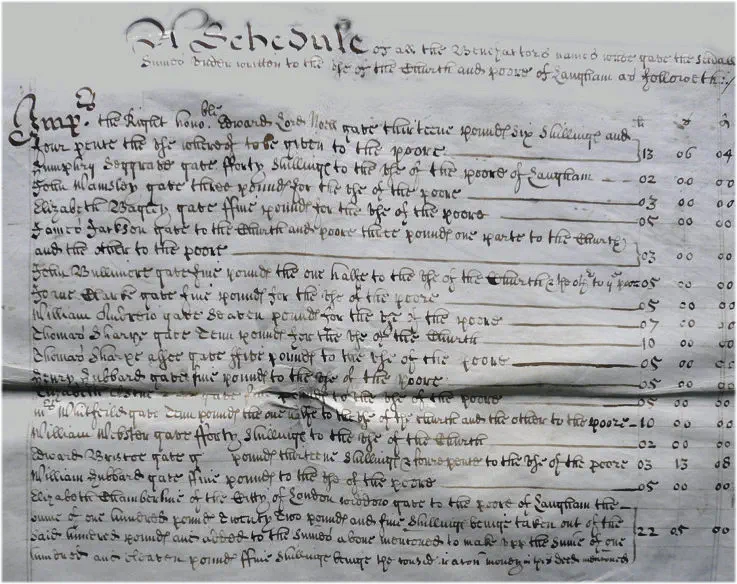 A Schedule of all the Benefactors names who gave the severall
Summes under written to the Use of the Church and poore of Langham as followeth :/
li s d
Imps. the Right honoble. Edward Lord Noell gave thirteene pounds six shillings and
Four pence the Use whereof to be given to the poore 13 06 04
Humphry Seggrave gave fforty shillings to the Use of the poore of Langham 02 00 00
John Wamsley gave three pounds for the Use of the poore 03 00 00
Elizabeth Bagley gave ffive pounds for the Use of the poore 05 00 00
James Jackson gave to the Church and poore three pounds one parte to the Church
and the other to the poore 03 00 00
John Bullimore gave five pounds the one halfe to the Use of the Church & the othr to ye poor 05 00 00
Clarke gave five pounds for the Use of the poore 05 00
William gave Seaven pounds for the Use of the poore 07 00 00
Thomas Sharpe gave Tenn pounds for the Use of the Church 10 00 00
Thomas Sharpe gave ffive pounds to the Use of the poore 05 00 00
Henry Hubbard gave five pounds to the Use of the poore 05 00 00
Elizabeth gave to the Use of the poore 05 00 00
Mr Whitfeild gave Tenn pounds the one halfe to the Use of the Church and the other to the poore 10 00 00
William Webster gave fforty shillings to the Use of the Church 02 00 00
Edward Briscoe gave pounds thirteene shillings & foure pence to the Use of the poore 03 13 08
William Hubbard gave ffive pounds to the Use of the poore 05 00 00
Elizabeth Chamberline of the Citty of London widdow gave to the poore of Langham the
sume of one hundred pounds Twenty Two pounds and five shillings beinge taken out of the
said hundred pounds and added to the Summes above mentioned to make upp the Sume of one 22 05 00
hundred and eleaven pounds ffive shillings beinge the money in this deed mentioned